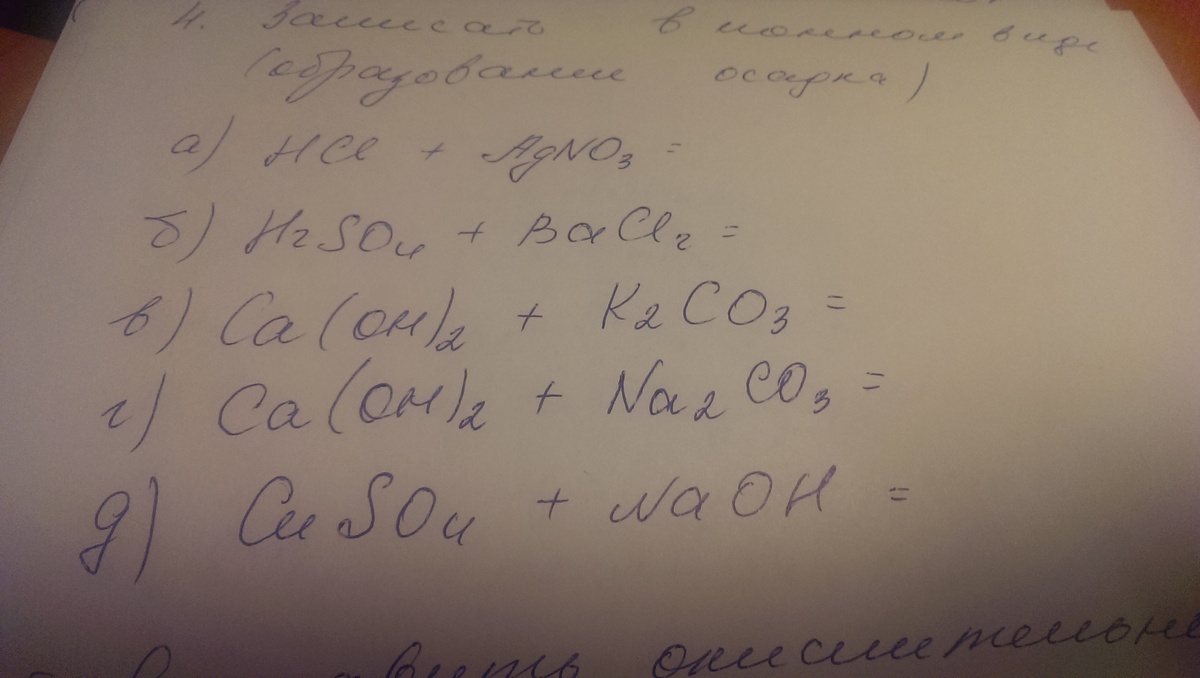 4. Записать в ионном виде
(образование осадка)
а) HCl + AgNO₃ =
б) H₂SO₄ + BaCl₂ =
в) Ca(OH)₂ + K₂CO₃ =
г) Ca(OH)₂ + Na₂CO₃ =
д) CuSO₄ + NaOH =